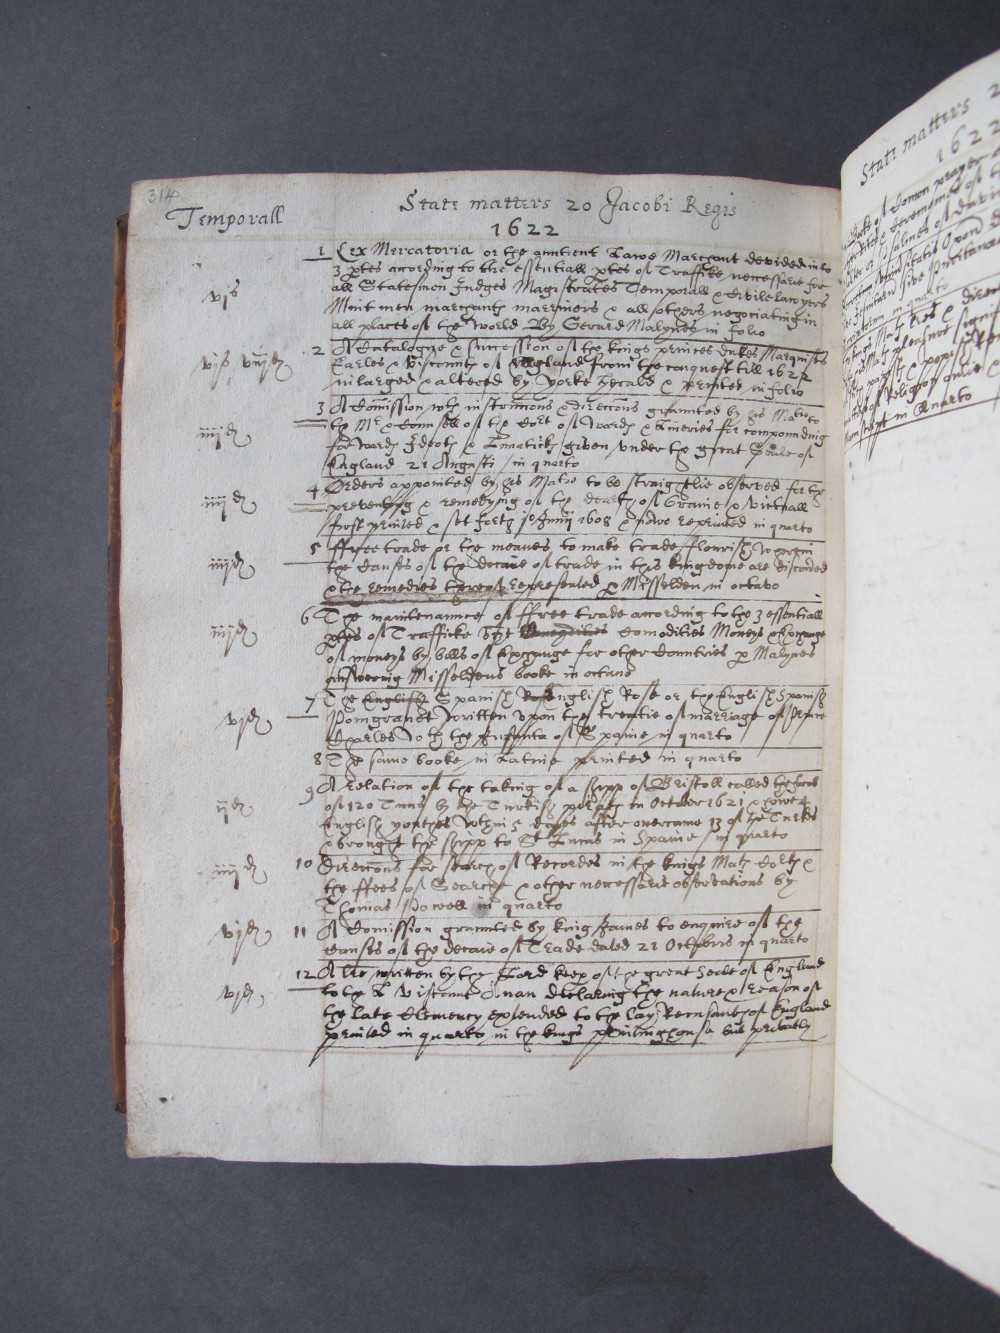 314
Temporall
State matters 20 Jacobi Regis
1622
1 Lex Mercatoria or the auntient Lawe Marchant devided into
3 ptes according to the essentiall ptes of Traffike necessarie for
vjs
all Statesmen Judges Magistrates Temporall & Civile lawyers
Mint men marchants marriners & all others negociating in
all places of the World By Gerard Malynes in folio
2 A Catalogue & succession of the kings princes dukes Marquises
vijs viijd
Earles & Viscounts of England from the conquest till 1622
inlarged & altered by Yorke Herald & printed in folio
3 A Comission wth instrucons & direccons graunted by his Matie to
iiijd
the Mr & Counsell of the Cort of Wards & Liveries for compounding
for Wards Ideots & Lunaticks given under the great Seale of
England 21 Augusti in quarto
4 Orders appointed by his Matie to be straightlie observed for the
iiijd
preventing & remedying of the dearth of Graine & victuall
first printed & set forth Junij 1608 & nowe reprinted in quarto
5 ffree trade or the meanes to make trade florish wherein
iiijd
the Causes of the decaie of trade in this kingdome are discovered
& the remedies thereof represented p Misselden in octavo
6 The maintenannce of ffree trade according to the 3 essentiall
iiijd
ptes of Trafficke vizt Comodities Moneys & Exchange
of moneys by bills of Exchange for other Countries p Malynes
answering Misseldens booke in octavo
7 The English Spanish English Rose or the English Spanish
vjd
Pomgranet written upon the treatie of marriage of Prince
Charles wth the Infanta of Spaine in quarto
8 The same booke in Latine printed in quarto
9 A relation of the taking of a shipp of Bristoll called the Jacob
ijd
of 120 Tuns by the Turkish pirats in October 1621 & howe 4
English youthes within 5 daies after overcame 13 of the Turks
& brought the shipp to St Lucas in Spaine in quarto
10 Direccons for search of Recordes in the kings Mats Corts &
iiijd
the ffees of Search & other necessarie observations by
Thomas Powell in quarto
11 A Comission graunted by king James to enquire of the
vjd
Causes of the decaie of Trade dated 21 Octobris in quarto
12 A lre written by the Lord keep of the great Seale of England
vjd
to the L Viscount Anan declaring the nature & reason of
the late Clemency extended to the lay Recusants of England
printed in quarto in the kings printing house but privatly
State matters 2
1622